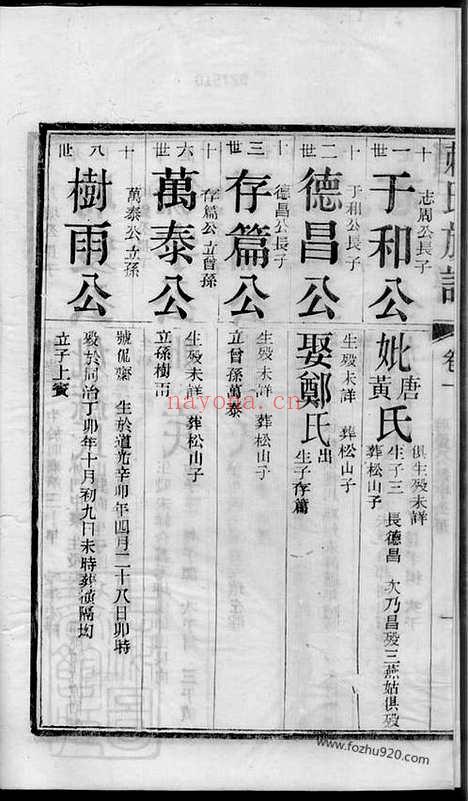 氏族譜
卷一
一
十一世
志周公長子
于和公
妣唐黃氏
俱生歿未詳 葬松山子
生子三 長德昌 次乃昌歿 三燕姑俱歿
十二世
于和公長子
德昌公
生歿未詳 葬松山子
娶鄭氏
出
生子存篇
十三世
德昌公長子
存篇公
生歿未詳 葬松山子
立曾孫萬泰
十六世
存篇公立曾孫
萬泰公
生歿未詳 葬松山子
立孫樹雨
十八世
萬泰公立孫
樹雨公
號侃齋 生於道光辛卯年四月二十八日卯時
歿於同治丁卯年十月初九日未時葬橫隔坳
立子上賓
nayona.cn
www.fozhu920.com